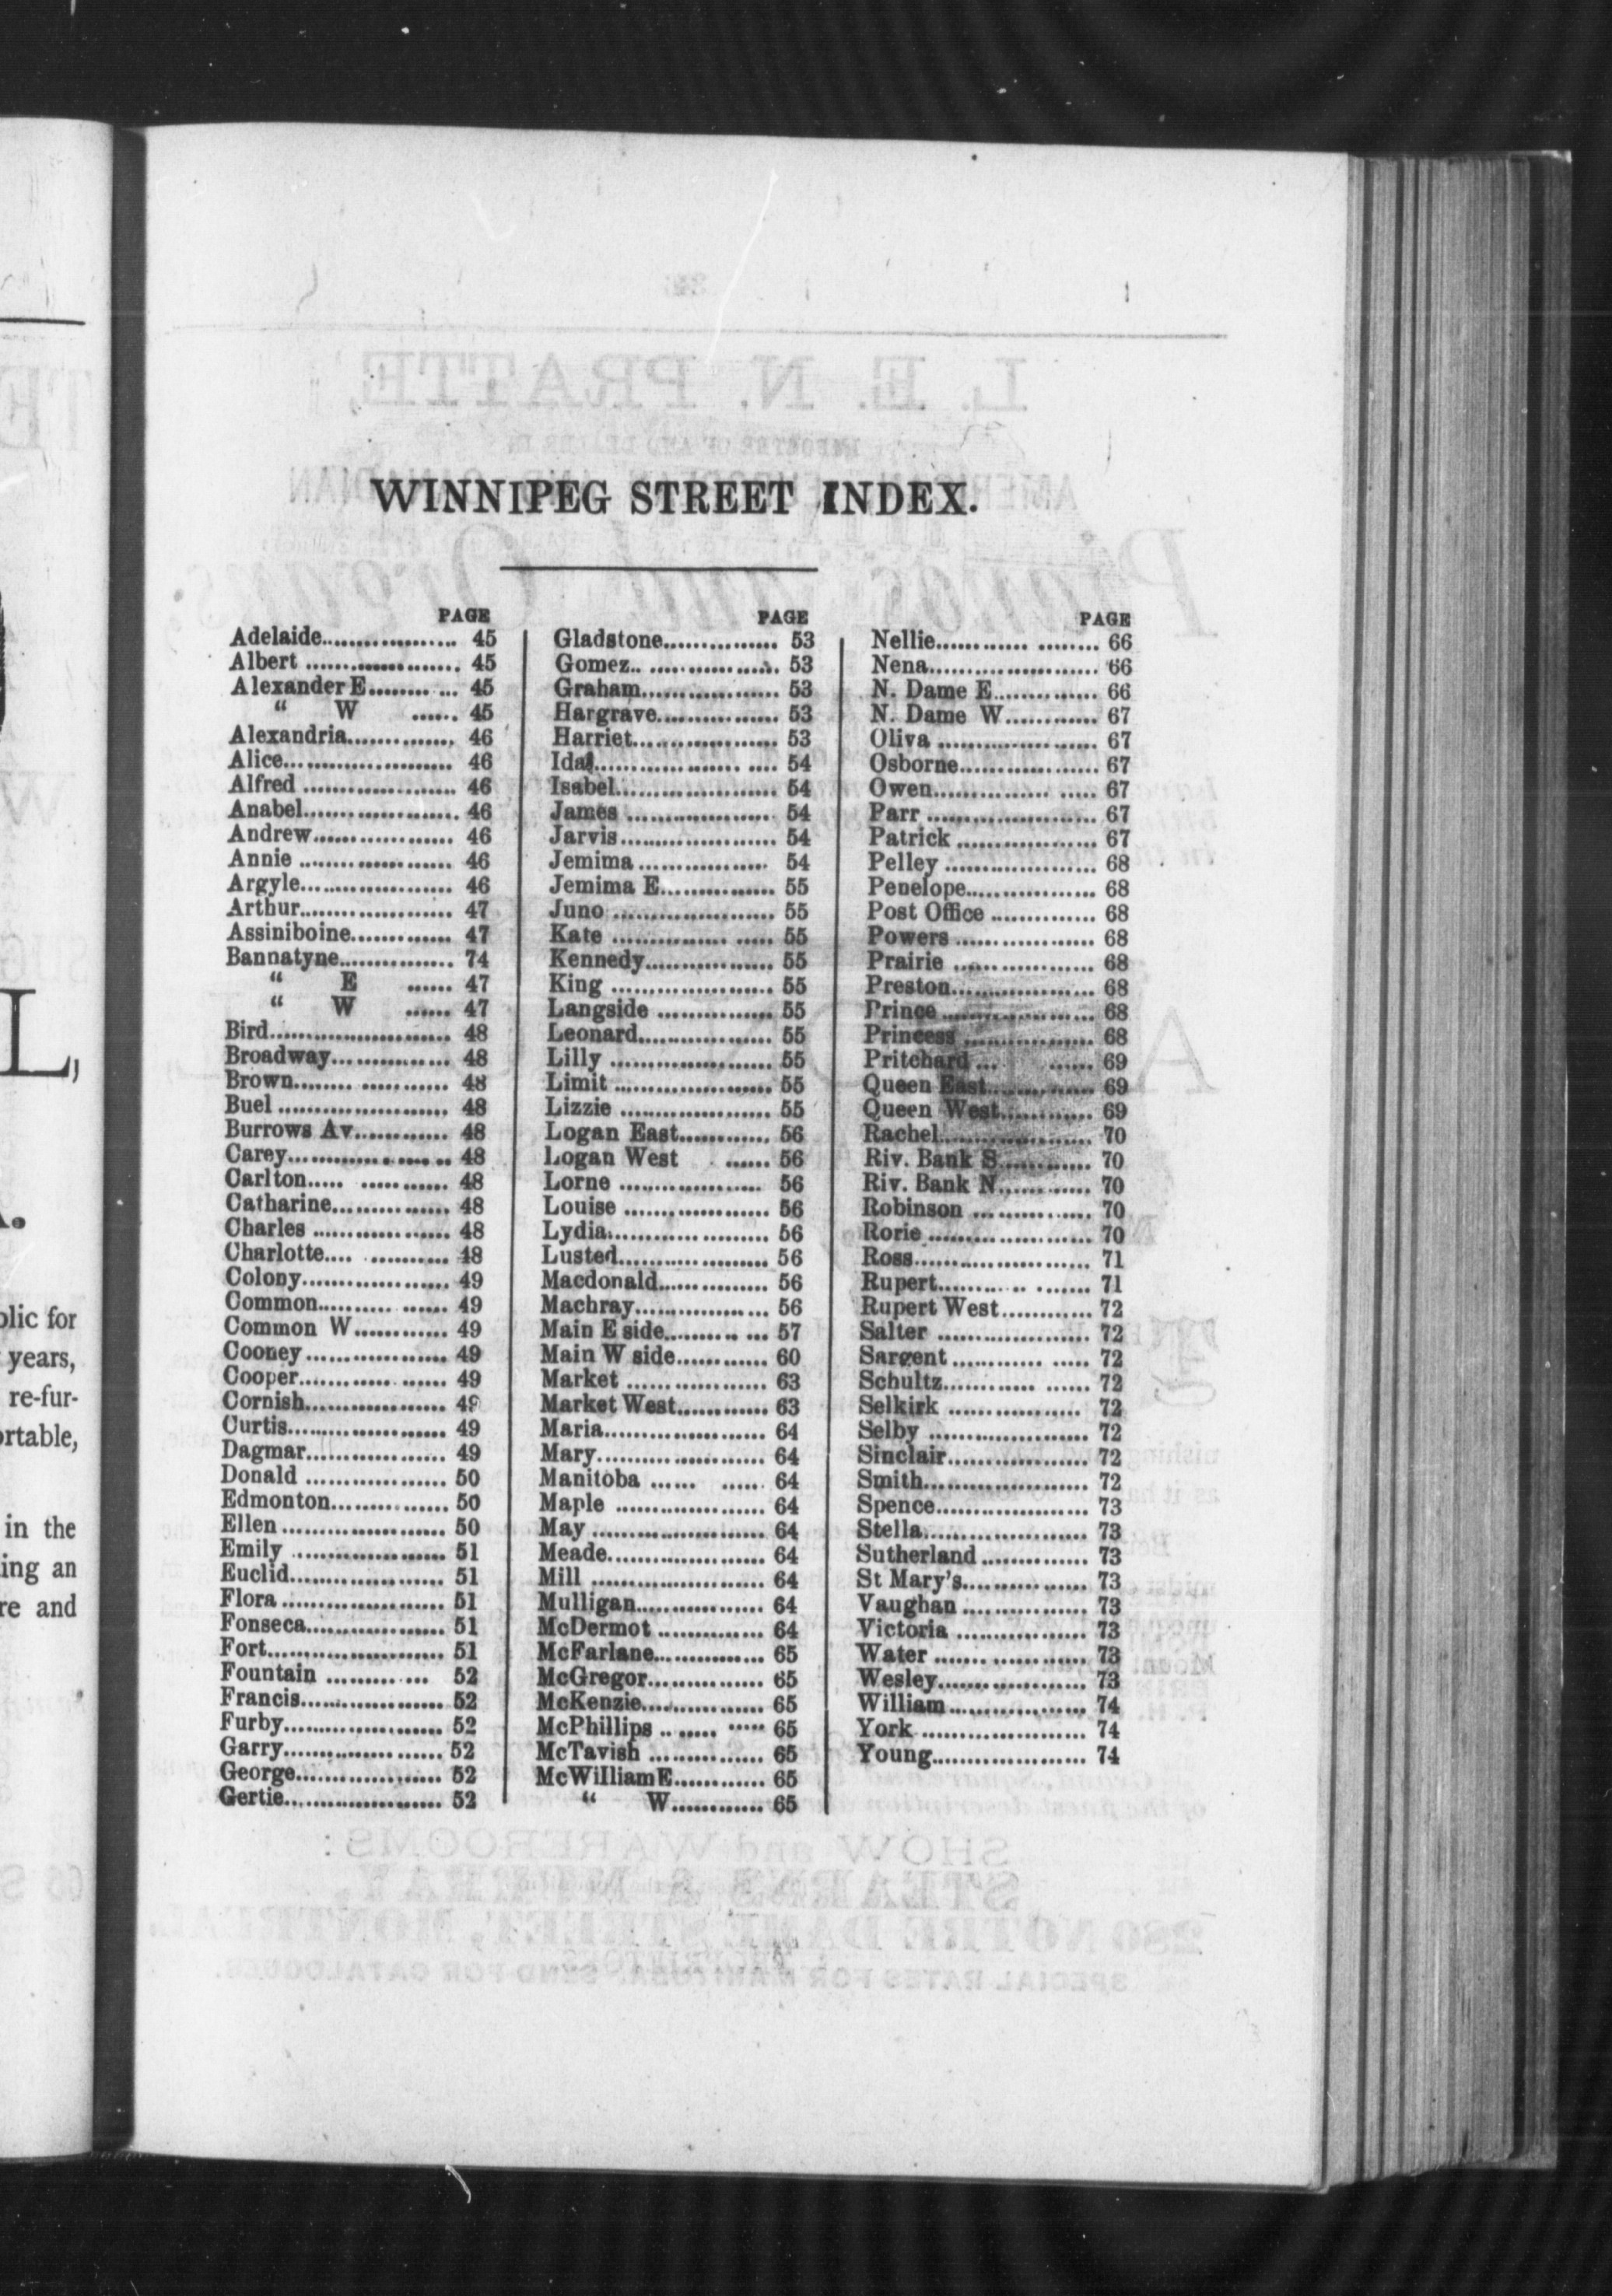 WINNIPEG STREET INDEX.
PAGE
Adelaide.................. 45
Albert ..................... 45
Alexander E............ 45
“ W ...... 45
Alexandria.............. 46
Alice...................... 46
Alfred .................... 46
Anabel.................... 46
Andrew.................. 46
Annie .................... 46
Argyle.................... 46
Arthur.................... 47
Assiniboine............. 47
Bannatyne............... 74
“ E ...... 47
“ W ...... 47
Bird........................ 48
Broadway............... 48
Brown.................... 48
Buel ....................... 48
Burrows Av............ 48
Carey...................... 48
Carlton................... 48
Catharine............... 48
Charles .................. 48
Charlotte............... 48
Colony................... 49
Common................ 49
Common W............ 49
Cooney................... 49
Cooper................... 49
Cornish.................. 49
Curtis..................... 49
Dagmar.................. 49
Donald .................. 50
Edmonton............... 50
Ellen...................... 50
Emily .................... 51
Euclid.................... 51
Flora ..................... 51
Fonseca.................. 51
Fort....................... 51
Fountain ............. 52
Francis................... 52
Furby..................... 52
Garry..................... 52
George................... 52
Gertie.................... 52
PAGE
Gladstone............... 53
Gomez.................... 53
Graham.................. 53
Hargrave................ 53
Harriet................... 53
Ida........................ 54
Isabel..................... 54
James .................... 54
Jarvis..................... 54
Jemima.................. 54
Jemima E............... 55
Juno ...................... 55
Kate ..................... 55
Kennedy................. 55
King ...................... 55
Langside ................ 55
Leonard.................. 55
Lilly ...................... 55
Limit ..................... 55
Lizzie .................... 55
Logan East............. 56
Logan West ...... 56
Lorne .................... 56
Louise ................... 56
Lydia..................... 56
Lusted.................... 56
Macdonald.............. 56
Machray................. 56
Main E side............ 57
Main W side............ 60
Market ................... 63
Market West............ 63
Maria..................... 64
Mary...................... 64
Manitoba ...... ...... 64
Maple .................... 64
May ....................... 64
Meade..................... 64
Mill ....................... 64
Mulligan................. 64
McDermot .............. 64
McFarlane............... 65
McGregor............... 65
McKenzie............... 65
McPhillips ............ 65
McTavish ............... 65
McWilliam E............ 65
“ W............. 65
PAGE
Nellie............. ........ 66
Nena....................... 66
N. Dame E.............. 66
N. Dame W............. 67
Oliva ...................... 67
Osborne.................. 67
Owen................ ..... 67
Parr ....................... 67
Patrick ................... 67
Pelley ..................... 68
Penelope................. 68
Post Office .............. 68
Powers................... 68
Prairie .................... 68
Preston................... 68
Prince .................... 68
Princess ................. 68
Pritchard ... ...... 69
Queen East.............. 69
Queen West............. 69
Rachel.................... 70
Riv. Bank S............ 70
Riv. Bank N............ 70
Robinson ................ 70
Rorie ..................... 70
Ross....................... 71
Rupert............ ....... 71
Rupert West............ 72
Salter .................... 72
Sargent ............ ..... 72
Schultz............ ...... 72
Selkirk .................. 72
Selby ..................... 72
Sinclair................... 72
Smith..................... 72
Spence.................... 73
Stella..................... 73
Sutherland .............. 73
St Mary's................ 73
Vaughan ................ 73
Victoria ................. 73
Water ....... ............. 73
Wesley.................... 73
William.................. 74
York ...................... 74
Young..................... 74
L,
blic for
years,
re-fur-
ortable,
in the
ing an
re and